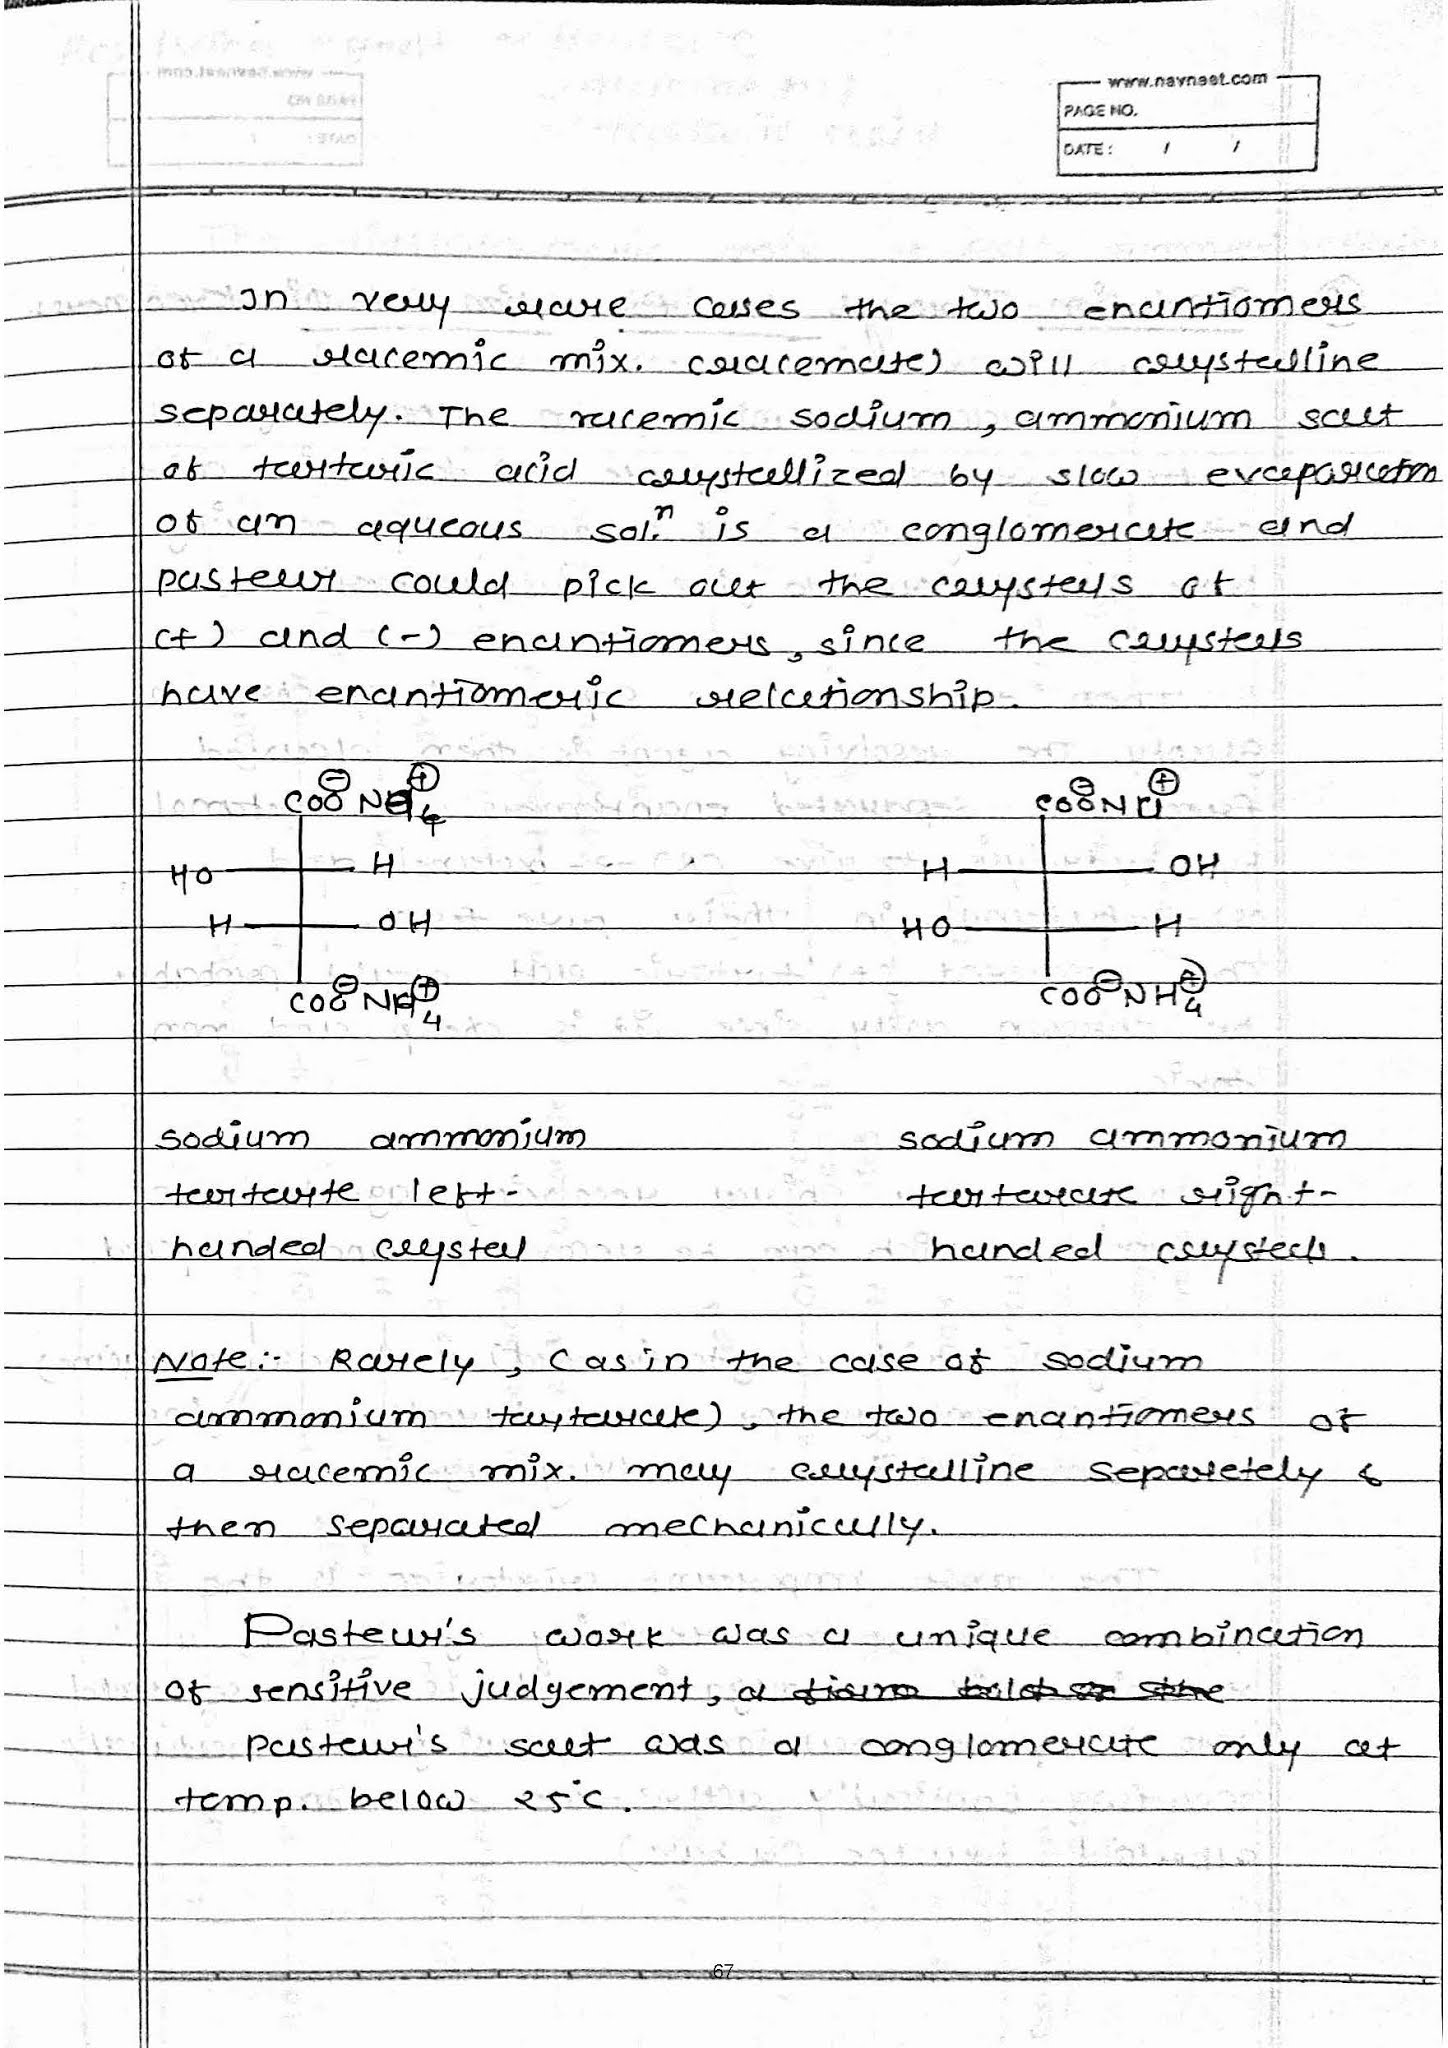 www.navneet.com
PAGE NO.
DATE: / /
In very rare cases the two enantiomers
of a racemic mix. (racemate) will crystalline
separately. The racemic sodium, ammonium salt
of tartaric acid crystallized by slow evaporation
of an aqueous sol.ⁿ is a conglomerate and
pasteur could pick out the crystals of
(+) and (-) enantiomers, since the crystals
have enantiomeric relationship.
COO⊖ ⊕ COO⊖ ⊕
HO H H OH
H OH HO H
COO⊖ NH₄⊕ COO⊖ NH₄⊕
sodium ammonium sodium ammonium
tartarte left- tartarate right-
handed crystal handed crystals.
Note:- Rarely, (as in the case of sodium
ammonium tartarate), the two enantiomers of
a racemic mix. may crystalline separetely &
then separated mechanically.
Pasteur's work was a unique combination
of sensitive judgement, a
pasteur's salt was a conglomerate only at
temp. below 25°c.
67